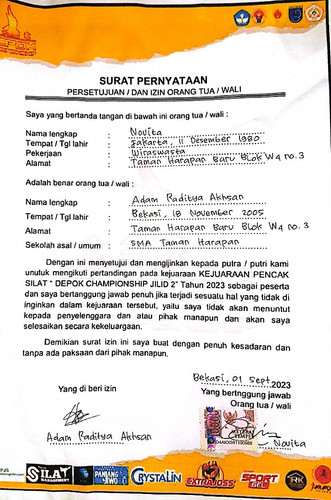 SURAT PERNYATAAN
PERSETUJUAN / DAN IZIN ORANG TUA / WALI
Saya yang bertanda tangan di bawah ini orang tua / wali :
Nama lengkap : Novita
Tempat / Tgl lahir : Jakarta, 11 Desember 1980
Pekerjaan : Wiraswasta
Alamat : Taman Harapan Baru Blok W4 no. 3
Adalah benar orang tua / wali :
Nama lengkap : Adam Raditya Akhsan
Tempat / Tgl lahir : Bekasi, 18 November 2005
Alamat : Taman Harapan Baru Blok W4 no. 3
Sekolah asal / umum : SMA Taman Harapan
Dengan ini menyetujui dan mengijinkan kepada putra / putri kami
unutuk mengikuti pertandingan pada kejuaraan KEJUARAAN PENCAK
SILAT " DEPOK CHAMPIONSHIP JILID 2" Tahun 2023 sebagai peserta
dan saya bertanggung jawab penuh jika terjadi sesuatu hal yang tidak di
inginkan dalam kejuaraan tersebut, yaitu saya tidak akan menuntut
kepada penyelenggara dan atau pihak manapun dan akan saya
selesaikan secara kekeluargaan.
Demikian surat izin ini saya buat dengan penuh kesadaran dan
tanpa ada paksaan dari pihak manapun.
Bekasi, 01 Sept 2023
Yang di beri izin
Yang bertnggung jawab
Orang tua / wali
METERAI
TEMPEL
Adam Raditya Akhsan
Novita
SILAT
MANAGEMENT
PANJANG
JIWO
CRYSTALIN
EXTRA JOSS
SPORT
GEL
RK